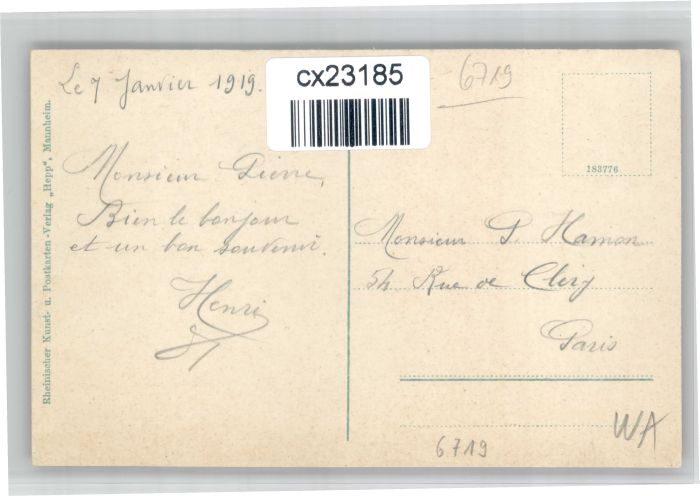 Le 7 Janvier 1919.
cx23185
6719
183776
Monsieur Pierre,
Bien le bonjour
et un bon souvenir.
Henri
Monsieur P. Hamon
54 Rue de Cléry
Paris
WA
6719
Rheinischer Kunst- u. Postkarten-Verlag „Hepp", Mannheim.